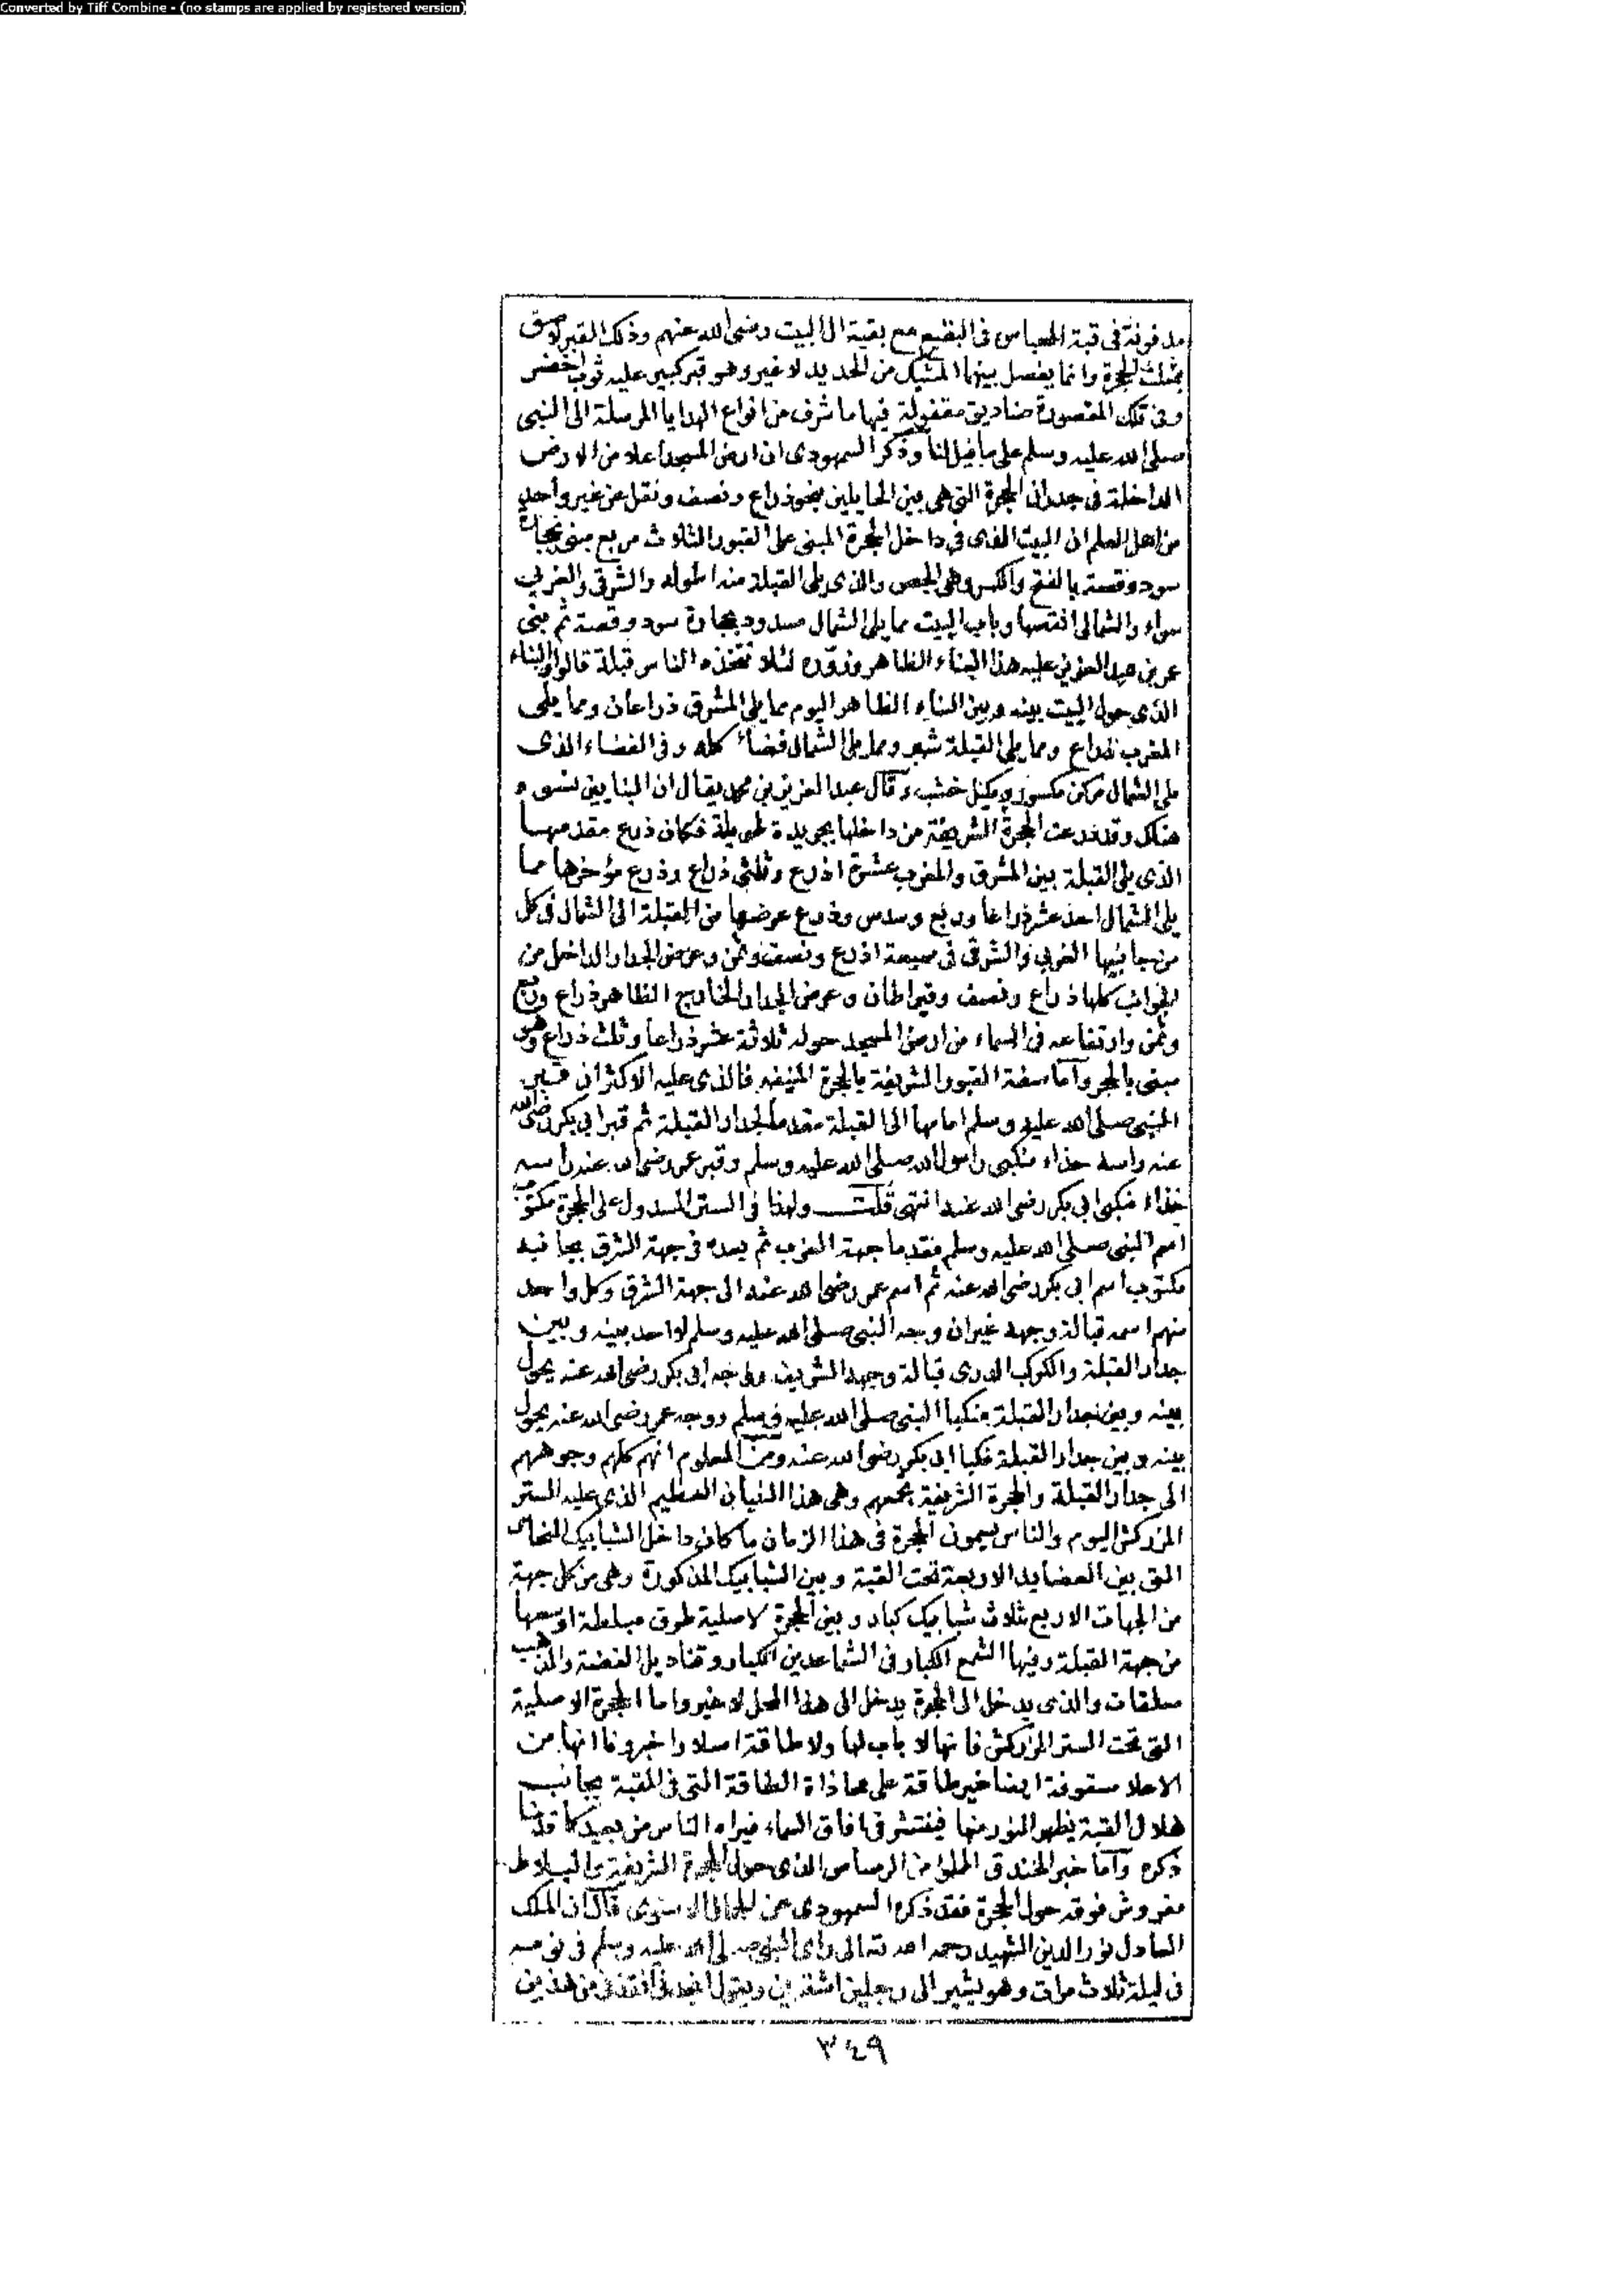 Converted by Tiff Combine - (no stamps are applied by registered version)
مدفونة في قبة العباس في البقيع مع بقية ال البيت رضى الله عنهم وذلك القبر لاصق
بمثلث الحجرة وانما يفصل بينهما المشبك من الحديد لا غير وهو قبر كبير عليه ثوب اخضر
وفى تلك المقصورة صناديق مقفولة فيها ما شرف من انواع الهدايا المرسلة الى النبى
صلى الله عليه وسلم على ما قيل لنا وذكر السمهودى ان ارض المسجد اعلا من الارض
الداخلة في جدران الحجرة التى هى بين الحايلين بنحو ذراع ونصف ونقل عن غير واحد
من اهل العلم ان البيت الذى في داخل الحجرة المبنى على القبور الثلاث مربع مبنى بحجارة
سود وقصة بالفتح والكسر وهى الجص والذى يلى القبلة منه اطوله والشرقى والغربى
سواء والشمالى انقصها وباب البيت مما يلى الشمال مسدود بحجارة سود وقصة ثم بنى
عمر بن عبد العزيز عليه هذا البناء الظاهر وزوّره لئلا تتخذه الناس قبلة قالوا والبناء
الذى حول البيت بينه وبين البناء الظاهر اليوم مما يلى المشرق ذراعان ومما يلى
المغرب ذراع ومما يلى القبلة شبر ومما يلى الشمال فضاء كله وفى الفضاء الذى
يلى الشمال مركن مكسور ومكتل خشب وقال عبد العزيز بن محمد يقال ان البنايين نسوه
هناك وقد ذرعت الحجرة الشريفة من داخلها بجريدة طويلة فكان ذرع مقدمها
الذى يلى القبلة بين المشرق والمغرب عشرة اذرع وثلثى ذراع وذرع مؤخرها مما
يلى الشمال احد عشر ذراعا وربع وسدس وذرع عرضها من القبلة الى الشمال في كل
من جانبيها الغربى والشرقى في سبعة اذرع ونصف وثمن وعرض الجدار الداخل من
الجوانب كلها ذراع ونصف وقيراطان وعرض الجدار الخارج الظاهر ذراع وربع
وثمن وارتفاعه في السماء من ارض المسجد حوله ثلاثة عشر ذراعا وثلث ذراع وهو
مبنى بالحجر وآما صفة القبور الشريفة بالحجرة المنيفه فالذى عليه الاكثر ان قبر
النبى صلى الله عليه وسلم امامها الى القبلة مقدما لجدار القبلة ثم قبر ابى بكر رضى الله
عنه راسه حذاء منكبى رسول الله صلى الله عليه وسلم وقبر عمر رضى الله عنه راسه
حذاء منكبى ابى بكر رضى الله عنه انتهى قلت ولهذا في الستر المسدول على الحجرة مكتوب
اسم النبى صلى الله عليه وسلم مقدما جهة الغرب ثم بعده في جهة الشرق بجانبه
مكتوب اسم ابى بكر رضى الله عنه ثم اسم عمر رضى الله عنه الى جهة الشرق وكل واحد
منهم اسمه قبالة وجهه غير ان وجه النبى صلى الله عليه وسلم لا احد بينه وبين
جدار القبلة والكوكب الدرى قبالة وجهه الشريف ووجه ابى بكر رضى الله عنه يحول
بينه وبين جدار القبلة منكبا النبى صلى الله عليه وسلم ووجه عمر رضى الله عنه يحول
بينه وبين جدار القبلة منكبا ابى بكر رضى الله عنه ومن المعلوم انهم كلهم وجوههم
الى جدار القبلة والحجرة الشريفة تجمعهم وهى هذا البنيان العظيم الذى عليه الستر
المزركش اليوم والناس يسمون الحجرة في هذا الزمان ما كان داخل الشبابيك النحاس
التى بين العضايد الاربعة تحت القبة وبين الشبابيك المذكورة وهى من كل جهة
من الجهات الاربع ثلاث شبابيك كبار وبين الحجرة الاصلية طرق مبلطة اوسعها
من جهة القبلة وفيها الشمع الكبار في الشماعدين الكبار وقناديل الفضة والذهب
معلقات والذى يدخل الى الحجرة يدخل الى هذا المحل لا غير واما الحجرة الاصلية
التى تحت الستر المزركش فانها لا باب لها ولا طاقة اصلا واخبرونا انها من
الاعلا مسقوفة ايضا غير طاقة على محاذاة الطاقة التى في القبة بجانب
هلال القبة يظهر النور منها فينتشر في افاق السماء فيراه الناس من بعيد كما قدمنا
ذكره وآما خبر الخندق المملؤ من الرصاص الذى حول الحجرة الشريفة والبلاط
مفروش فوقه حول الحجرة فقد ذكره السمهودى عن الجمال الاسنوى قال ان الملك
العادل نور الدين الشهيد رحمه الله تعالى راى النبى صلى الله عليه وسلم في نومه
في ليلة ثلاث مرات وهو يشير الى رجلين اشقرين ويقول انجدنى انقذنى من هذين
٣٤٩